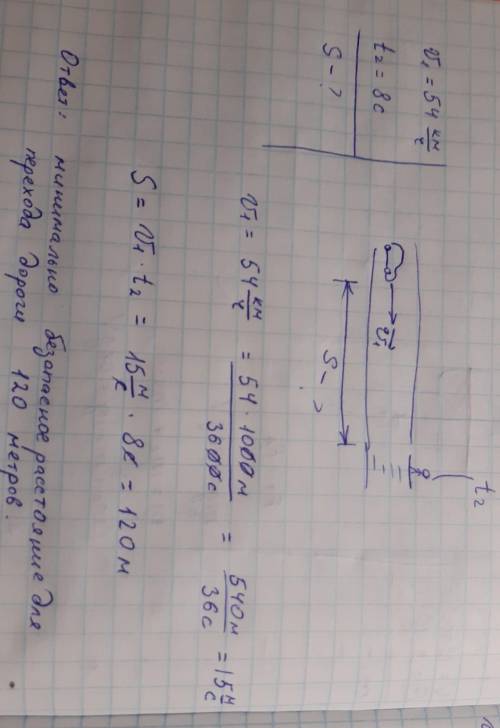 v₁ = 54 км/ч
t₂ = 8 с
S - ?
t₂
v₁
S - ?
v₁ = 54 км/ч = 54 · 1000 м / 3600 с = 540 м / 36 с = 15 м/с
S = v₁ · t₂ = 15 м/с · 8 с = 120 м
Ответ: минимально безопасное расстояние для
перехода дороги 120 метров.